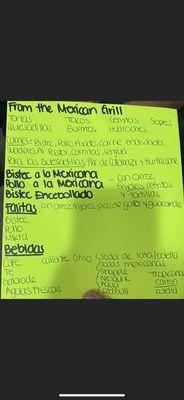 From the Mexican Grill
Tortas Tacos Cemitas Sopes
Quesadillas Burritos Huaraches
Carnes: Bistec, Pollo Asado, Carne enchilada,
Suadero, Al Pastor, Carnitas, Lengua
Para las Quesadillas: Flor de Calabaza y Huitlacoche
Bistec a la Mexicana
Pollo a la Mexicana - con arroz,
frijoles refritos
Bistec Encebollado y tortillas
Fajitas con arroz, frijoles, pico de gallo y guacamole
Bistec
Pollo
Mixta
Bebidas
Cafe caliente o frio
Te
Gatorade
Aguas Frescas
Soda de lata/botella
Sodas mexicanas
Snapple
Nesquik
Agua
Red Bull
Tropicana
carton
botella